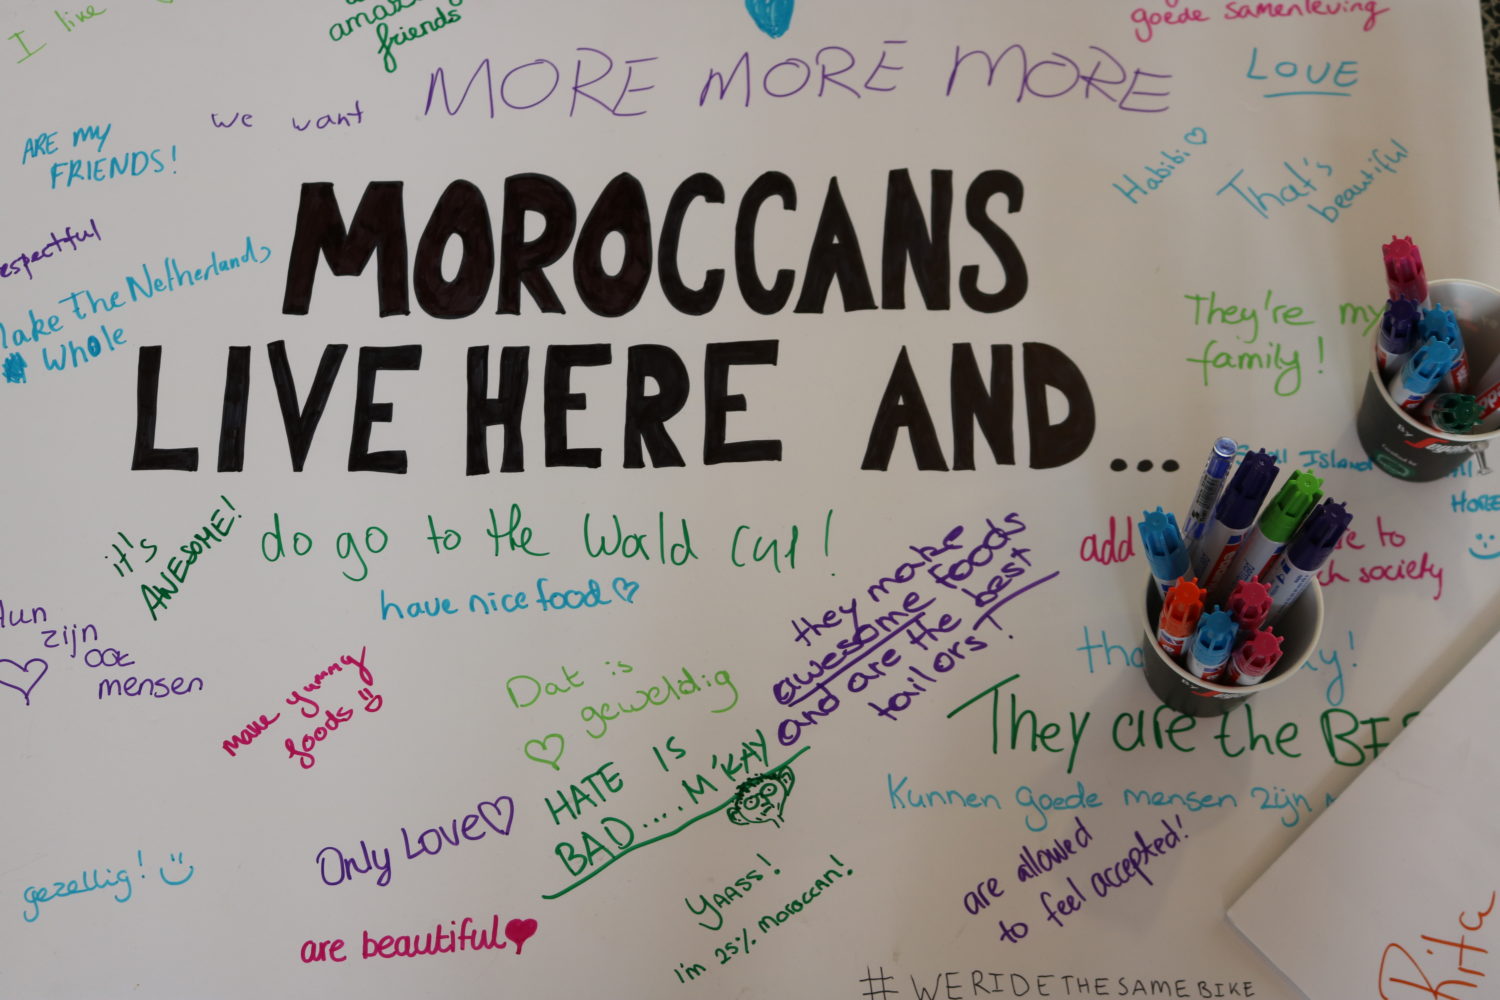 I like
amazing
friends
goede samenleving
we want MORE MORE MORE
LOVE
ARE my
FRIENDS!
Habibi
That's
beautiful
MOROCCANS
LIVE HERE AND...
espectful
ake The Netherlands
Whole
They're my
family!
Island
HOME
it's
AWESOME!
do go to the World Cup!
have nice food
they make
awesome foods
and are the best
tailors!
add
to
society
Hun
zijn
ook
mensen
make yummy
foods
Dat is
geweldig
HATE IS
BAD.... M'KAY
They are the
Kunnen goede mensen zijn
Only Love
gezellig!
are beautiful
YAASS!
I'm 25% moroccan!
are allowed
to feel accepted!
#WERIDETHESAMEBIKE
Rita